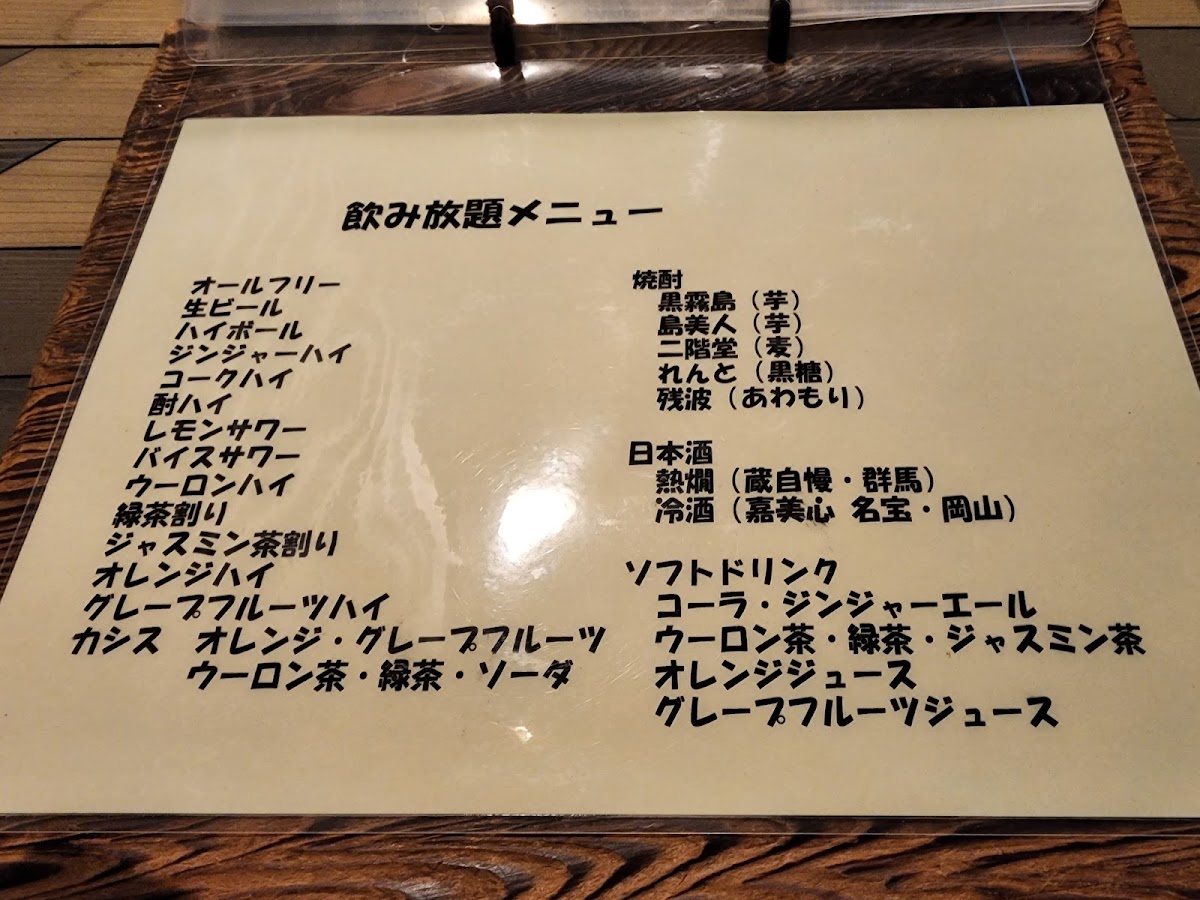 飲み放題メニュー
オールフリー
生ビール
ハイボール
ジンジャーハイ
コークハイ
酎ハイ
レモンサワー
バイスサワー
ウーロンハイ
緑茶割り
ジャスミン茶割り
オレンジハイ
グレープフルーツハイ
カシス　オレンジ・グレープフルーツ
ウーロン茶・緑茶・ソーダ
焼酎
黒霧島（芋）
島美人（芋）
二階堂（麦）
れんと（黒糖）
残波（あわもり）
日本酒
熱燗（蔵自慢・群馬）
冷酒（嘉美心 名宝・岡山）
ソフトドリンク
コーラ・ジンジャーエール
ウーロン茶・緑茶・ジャスミン茶
オレンジジュース
グレープフルーツジュース